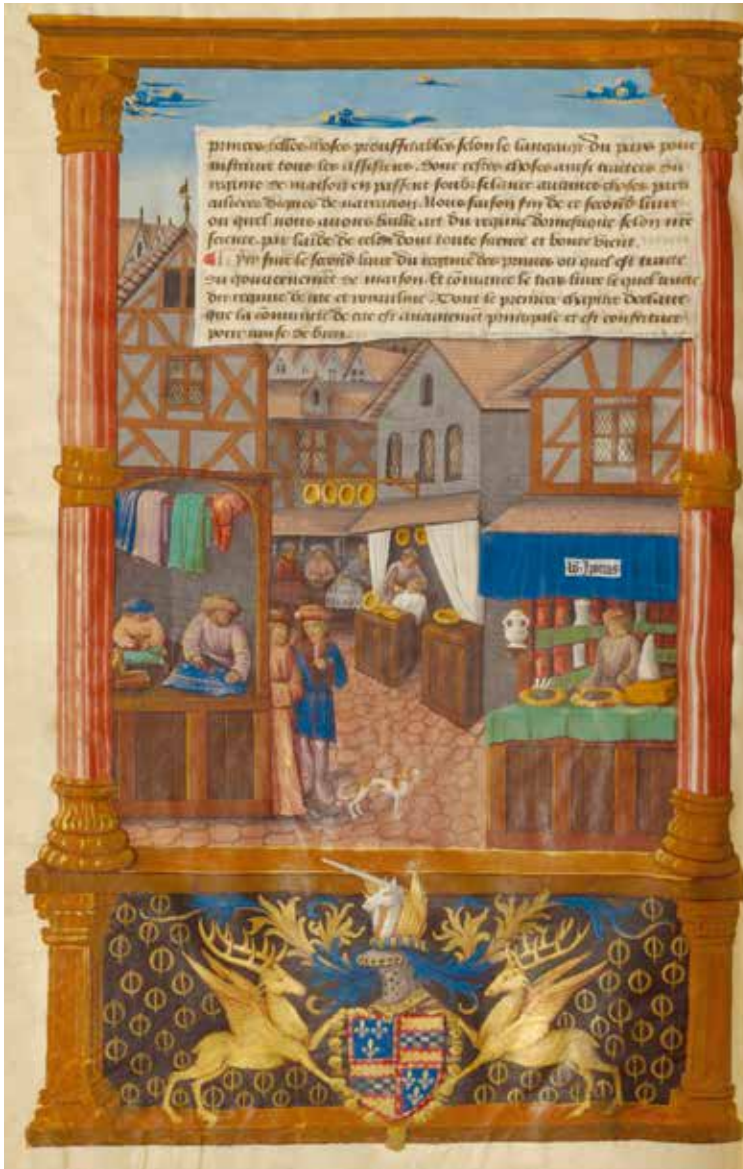 princes telles choses prouffitables selon le langaige du pays pour
instruire tous les assistens. Donc cestes choses ainsi traitees du
regime de maison en passent soubz silence aucunes choses parti
culieres dignes de narration. Nous faison fin de ce second livre
ou quel nous avons baille art du regime domestique selon nre
science. par laide de celui dont toute science et bonte vient.
Cy fine le second livre du regime des princes ou quel est traicte
du gouvernement de maison. Et comance le tiers livre le quel traicte
du regime de cite et royaulme. Dont le premier chapitre declaire
que la comunite de cite est aucunemet principale et est constituee
pour cause de bien